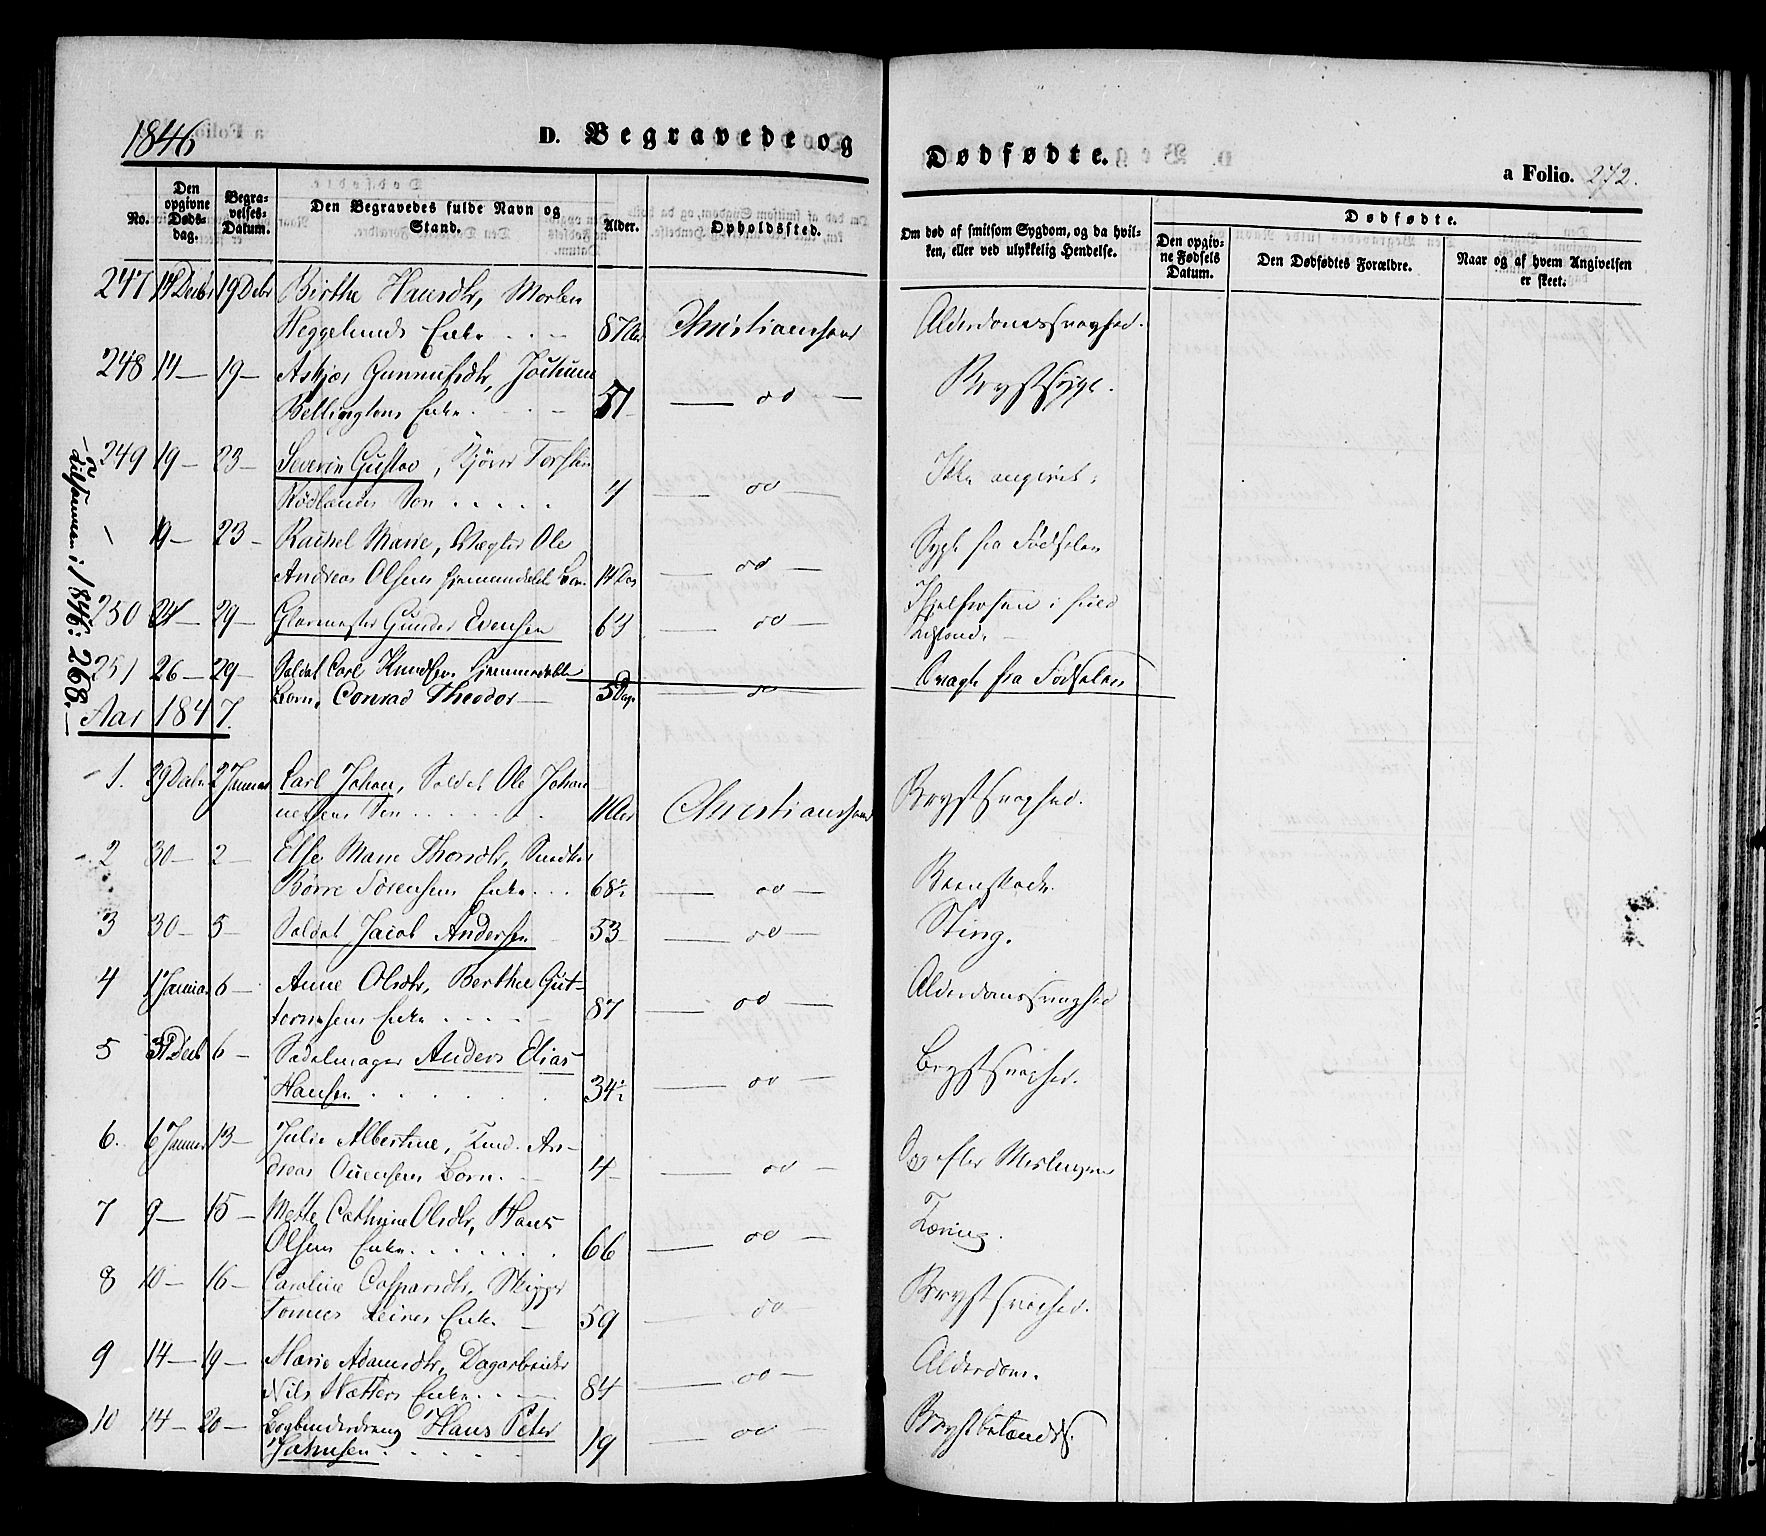 1846
D. Begravede og
Dødfødte.
a Folio. 272.
No.
Den opgivne Døds-dag.
Begra-velses-Datum.
Den Begravedes fulde Navn og Stand.
Alder.
Opholdssted.
Om død af smitsom Sygdom, og da hvil-ken, eller ved ulykkelig Hendelse.
Dødfødte.
Den opgiv-ne Fødsels Datum.
Den Dødfødtes Forældre.
Naar og af hvem Angivelsen er skeet.
247 14 Decbr 19 Debr Birthe Hansdtr, Morten
Heggelunds Enke 87 Aar Christianssand Alderdomssvaghed.
248 14 — 19 — Askjær Gunnulfsdtr, Jochum
Bellingtons Enke 51 — do — Brystsyge.
249 19 — 23 — Severin Gustav, Bjørn Torsten
Rødlands Søn 4 — do — Ikke angivet.
19 — 23 — Rachel Marie, Vægter Ole
Andreas Olsens hjemmedøbt Barn 14 Dag — do — Sygt fra Fødselen
250 24 — 29 — Glarmester Gunder Evensen 63 — do — Ihjelfrosen i fuld
Tilstand.
251 26 — 29 — Soldat Carl Knudsen hjemmedøbte
Barn, Conrad Theodor 5 Dage — do — Svagt fra Fødselen
Tilsammen i 1846: 268.
Aar 1847.
1. 29 Decbr 2 Januar Carl Johan, Soldat Ole Johan-
nessens Søn 11 Aar Christianssand Brystsvaghed.
2 30 — 2 — Else Marie Thorsdtr, Snedker
Børre Sørensens Enke 68½ — do — Beenskade.
3 30 — 5 — Soldat Jacob Andersen 53 — do — Sting.
4 1 Januar 6 — Anne Olsdtr, Berthel Gut-
tormsens Enke 87 — do — Alderdomssvaghed
5 31 Decb 6 — Sadelmager Anders Elias
Hansen 34½ — do — Brystsvaghed.
6. 6 Januar 13 — Julie Albertine, Tind. An-
dreas Evensens Barn. 4 — do — efter Meslingerne
7 9 — 15 — Mette Cathrine Olsdtr, Hans
Olsens Enke 66 — do — Tæring.
8 10 — 16 — Caroline Caspersdtr, Skipper
Tønnes Enke 59 — do — Brystsvaghed.
9 14 — 19 — Marie Adamsdtr, Dagarbeider
Nils Enke 84 — do — Alderdom.
10 14 — 20 — Bogbinderdreng Hans Peter
Johnsen 19 — do — Brystbetændels.